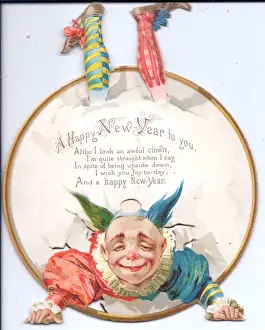 A Happy New-Year to you.
Altho' I look an awful clown,
I'm quite straight when I say,
In spite of being upside down,
I wish you Joy to-day,
And a happy New-Year.